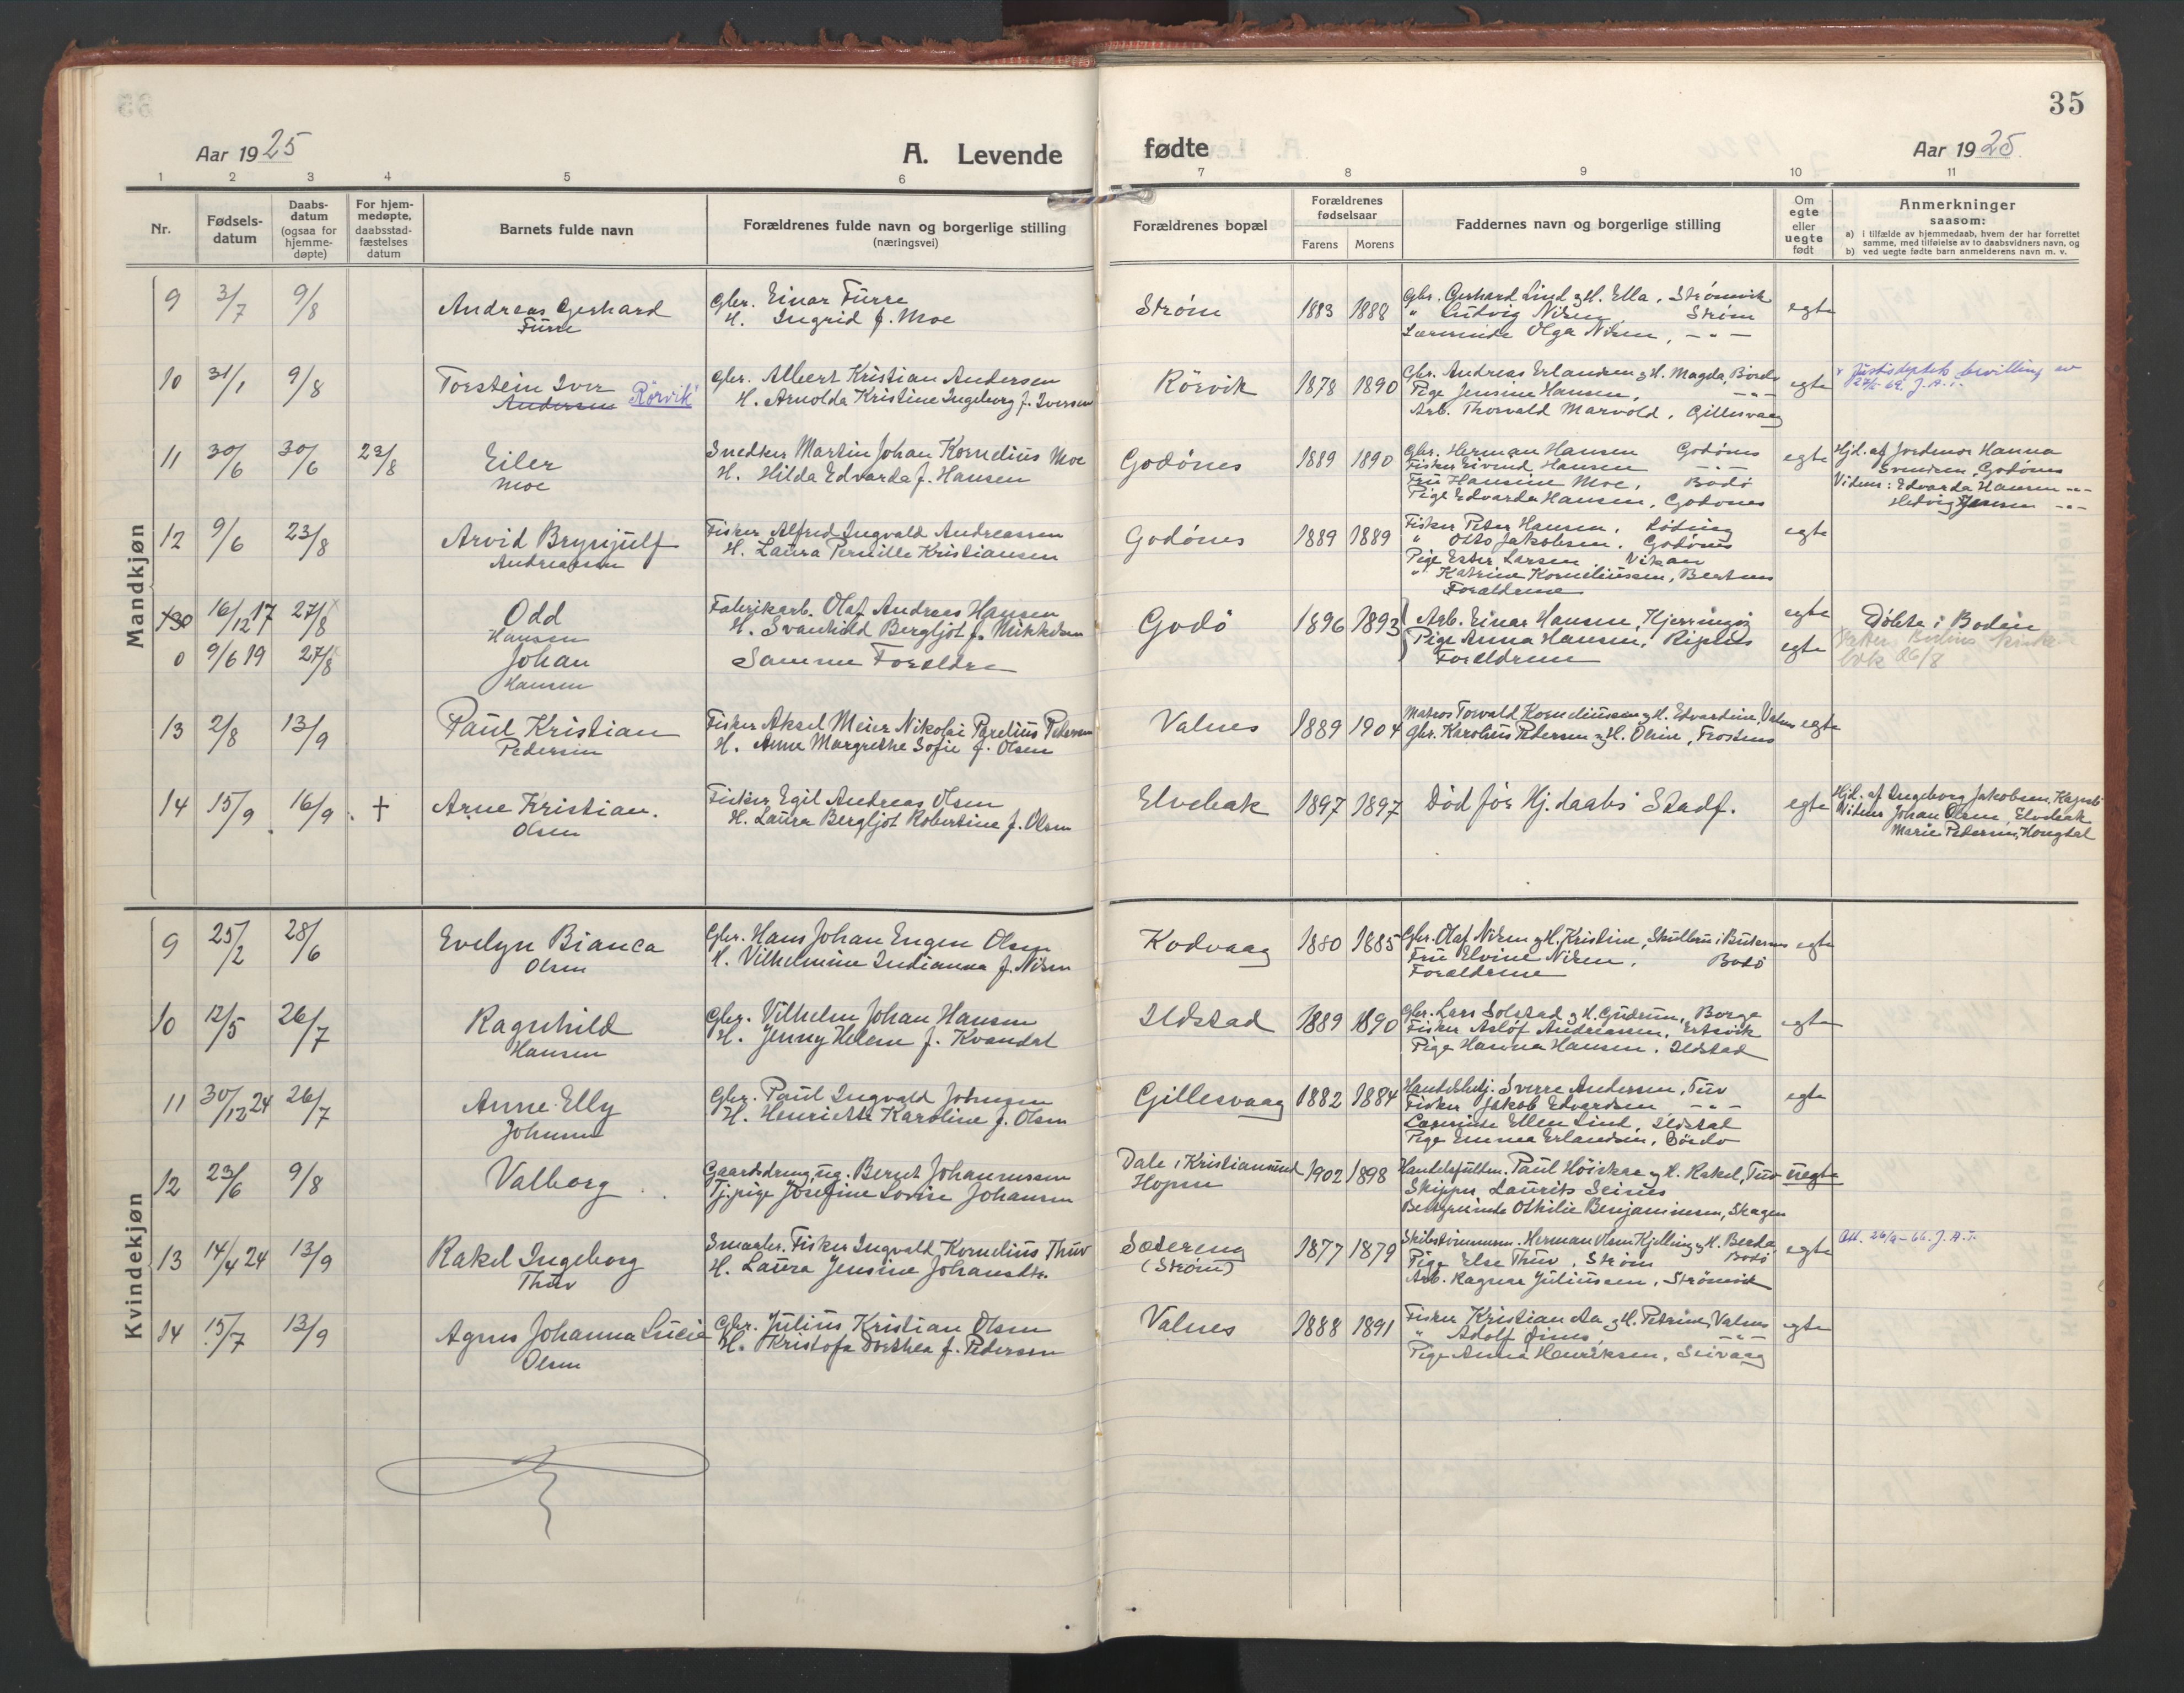 35
Aar 1925
A. Levende
fødte
Aar 1925.
1 2 3 4 5 6 7 8 9 10 11
Nr.
Fødsels-
datum
Daabs-
datum
(ogsaa for
hjemme-
døpte)
For hjem-
medøpte,
daabsstad-
fæstelses
datum
Barnets fulde navn
Forældrenes fulde navn og borgerlige stilling
(næringsvei)
Forældrenes bopæl
Forældrenes
fødselsaar
Farens Morens
Faddernes navn og borgerlige stilling
Om
egte
eller
uegte
født
Anmerkninger
saasom:
a) i tilfælde av hjemmedaab, hvem der har forrettet
samme, med tilføielse av to daabsvidners navn, og
b) ved uegte fødte barn anmelderens navn m. v.
Mandkjøn
9 3/7 9/8
Andreas Gerhard
Furre
Gbr. Einar Furre
H. Ingrid f. Moe
Strøm 1883 1888
Gbr. Gerhard Lind og H. Ella, Strømvik
" Ludvig Nilsen Strøm
Lærerinde Olga Nilsen, - " -
egte
10 31/1 9/8
Torstein Iver
Andersen Rørvik
Gbr. Albert Kristian Andersen
H. Arnolda Kristine Ingeborg f. Iversen
Rörvik 1878 1890
Gbr. Andreas Erlandsen og H. Magda,
Pige Jensine Hansen, - " -
Arb. Thorvald Marvold, Gillesvaag
egte
Justisdeptets bevilling av
J.A.T.
11 30/6 30/6 23/8
Eiler
Moe
Snedker Martin Johan Kornelius Moe
H. Hilda Edvarda f. Hansen
Godönes 1889 1890
Gbr. Herman Hansen Godönes
Fisker Eivind Hansen - " -
Fru Hansine Moe, Bodö
Pige Edvarda Hansen, Godönes
egte
Hjd. af Jordmor Hanna
Svendsen, Godönes
Vidner: Edvarda Hansen - " -
Hedvig Jensen - " -
12 9/6 23/8
Arvid Brynjulf
Andreassen
Fisker Alfred Ingvald Andreassen
H. Laura Pernille Kristiansen
Godönes 1889 1889
Fisker Peter Hansen, Löding
" Otto Jakobsen, Godönes
Pige Ester Larsen Vikan
" Katrine Korneliussen, Bertnes
Forældrene
egte
16/12 17 27/8
Odd
Hansen
Fabrikarb. Olaf Andreas Hansen
H. Svanhild Bergljot f. Mikkelsen
Godö 1896 1893
Arb. Einar Hansen, Kjerringöy
Pige Anna Hansen, Ripnes
Forældrene
egte
Döbte i Bodin
0 9/6 19 27/8
Johan
Hansen
Samme Forældre
egte
bok 26/8
13 2/8 13/9
Paul Kristian
Pedersen
Fisker Aksel Meier Nikolai Parelius Pedersen
H. Anne Margrethe Sofie f. Olsen
Valnes 1889 1904
Matros Torvald Korneliussen og H. Edvardine, Valnes
Gbr. Karolius Pedersen og H. Oline,
egte
14 15/9 16/9 †
Arne Kristian.
Olsen
Fisker Egil Andreas Olsen
H. Laura Bergljot Robertine f. Olsen
Elvebak 1897 1897
Död för Hj.daabs Stadf.
egte
Hjd. af Ingeborg Jakobsen,
Vidner Johan Olsen, Elvebak
Marie Pedersen, Hongdal
Kvindekjøn
9 25/2 28/6
Evelyn Bianca
Olsen
Gbr. Hans Johan Engen Olsen
H. Vilhelmine Indianna f. Nilsen
Kodvaag 1880 1885
Gbr. Olaf Nilsen og H. Kristine,
Fru Elvine Nilsen, Bodö
Forældrene
egte
10 12/5 26/7
Ragnhild
Hansen
Gbr. Vilhelm Johan Hansen
H. Jenny Helene f. Kvandal
Ildstad 1889 1890
Gbr. Lars Solstad og H. Gudrun, Borge
Fisker Aslöf Andreassen, Ertsvik
Pige Hanna Hansen, Ildstad
egte
11 30/12 24 26/7
Anne Elly
Johnsen
Gbr. Paul Ingvald Johnsen
H. Henriette Karoline f. Olsen
Gillesvaag 1882 1884
Handelsbetj. Sverre Andersen, Tuv
Fisker Jakob Edvardsen - " -
Lærerinde Ellen Lind, Ildstad
Pige Emma Erlandsen,
egte
12 23/6 9/8
Valborg
Gaardsdreng, ug. Bernt Johannessen
Tj.pige Josefine Lovise Johansen
Dale i Kristiansund
Hopen
1902 1898
Handelsfullm. Paul Höivær og H. Rakel, Tuv
Skipper Laurits Seines
Bestyrerinde Othilie Benjaminsen, Skagen
uegte
13 14/4 24 13/9
Rakel Ingeborg
Thuv
Smaabr. Fisker Ingvald Kornelius Thuv
H. Laura Jensine Johansdtr.
Sætereng
(Strøm)
1877 1879
Skibstømmerm. Herman Olsen Kjelling og H. Berta
Bodö
Pige Else Thuv, Strøm
Arb. Ragnar Juliussen, Strömvik
egte
Att. 26/4-66. J.A.T.
14 15/7 13/9
Agnes Johanna Lucie
Olsen
Gbr. Julius Kristian Olsen
H. Kristofa Dorthea f. Pedersen
Valnes 1888 1891
Fisker Kristian Aa og H. Petrine, Valnes
" Adolf - " -
Pige Anna Henriksen, Seivaag
egte